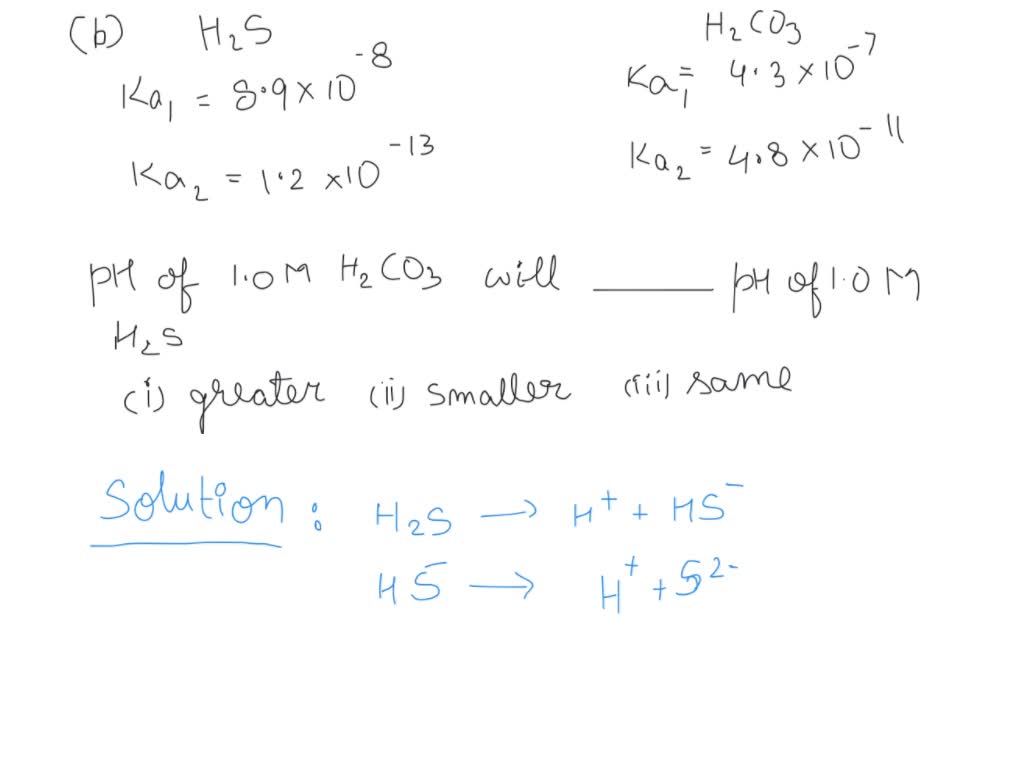 (b) H₂S H₂CO₃
Ka₁ = 8.9 × 10⁻⁸ Ka₁ = 4.3 × 10⁻⁷
Ka₂ = 1.2 × 10⁻¹³ Ka₂ = 4.8 × 10⁻¹¹
pH of 1.0 M H₂CO₃ will ______ pH of 1.0 M
H₂S
(i) greater (ii) smaller (iii) same
Solution : H₂S → H⁺ + HS⁻
HS⁻ → H⁺ + S²⁻